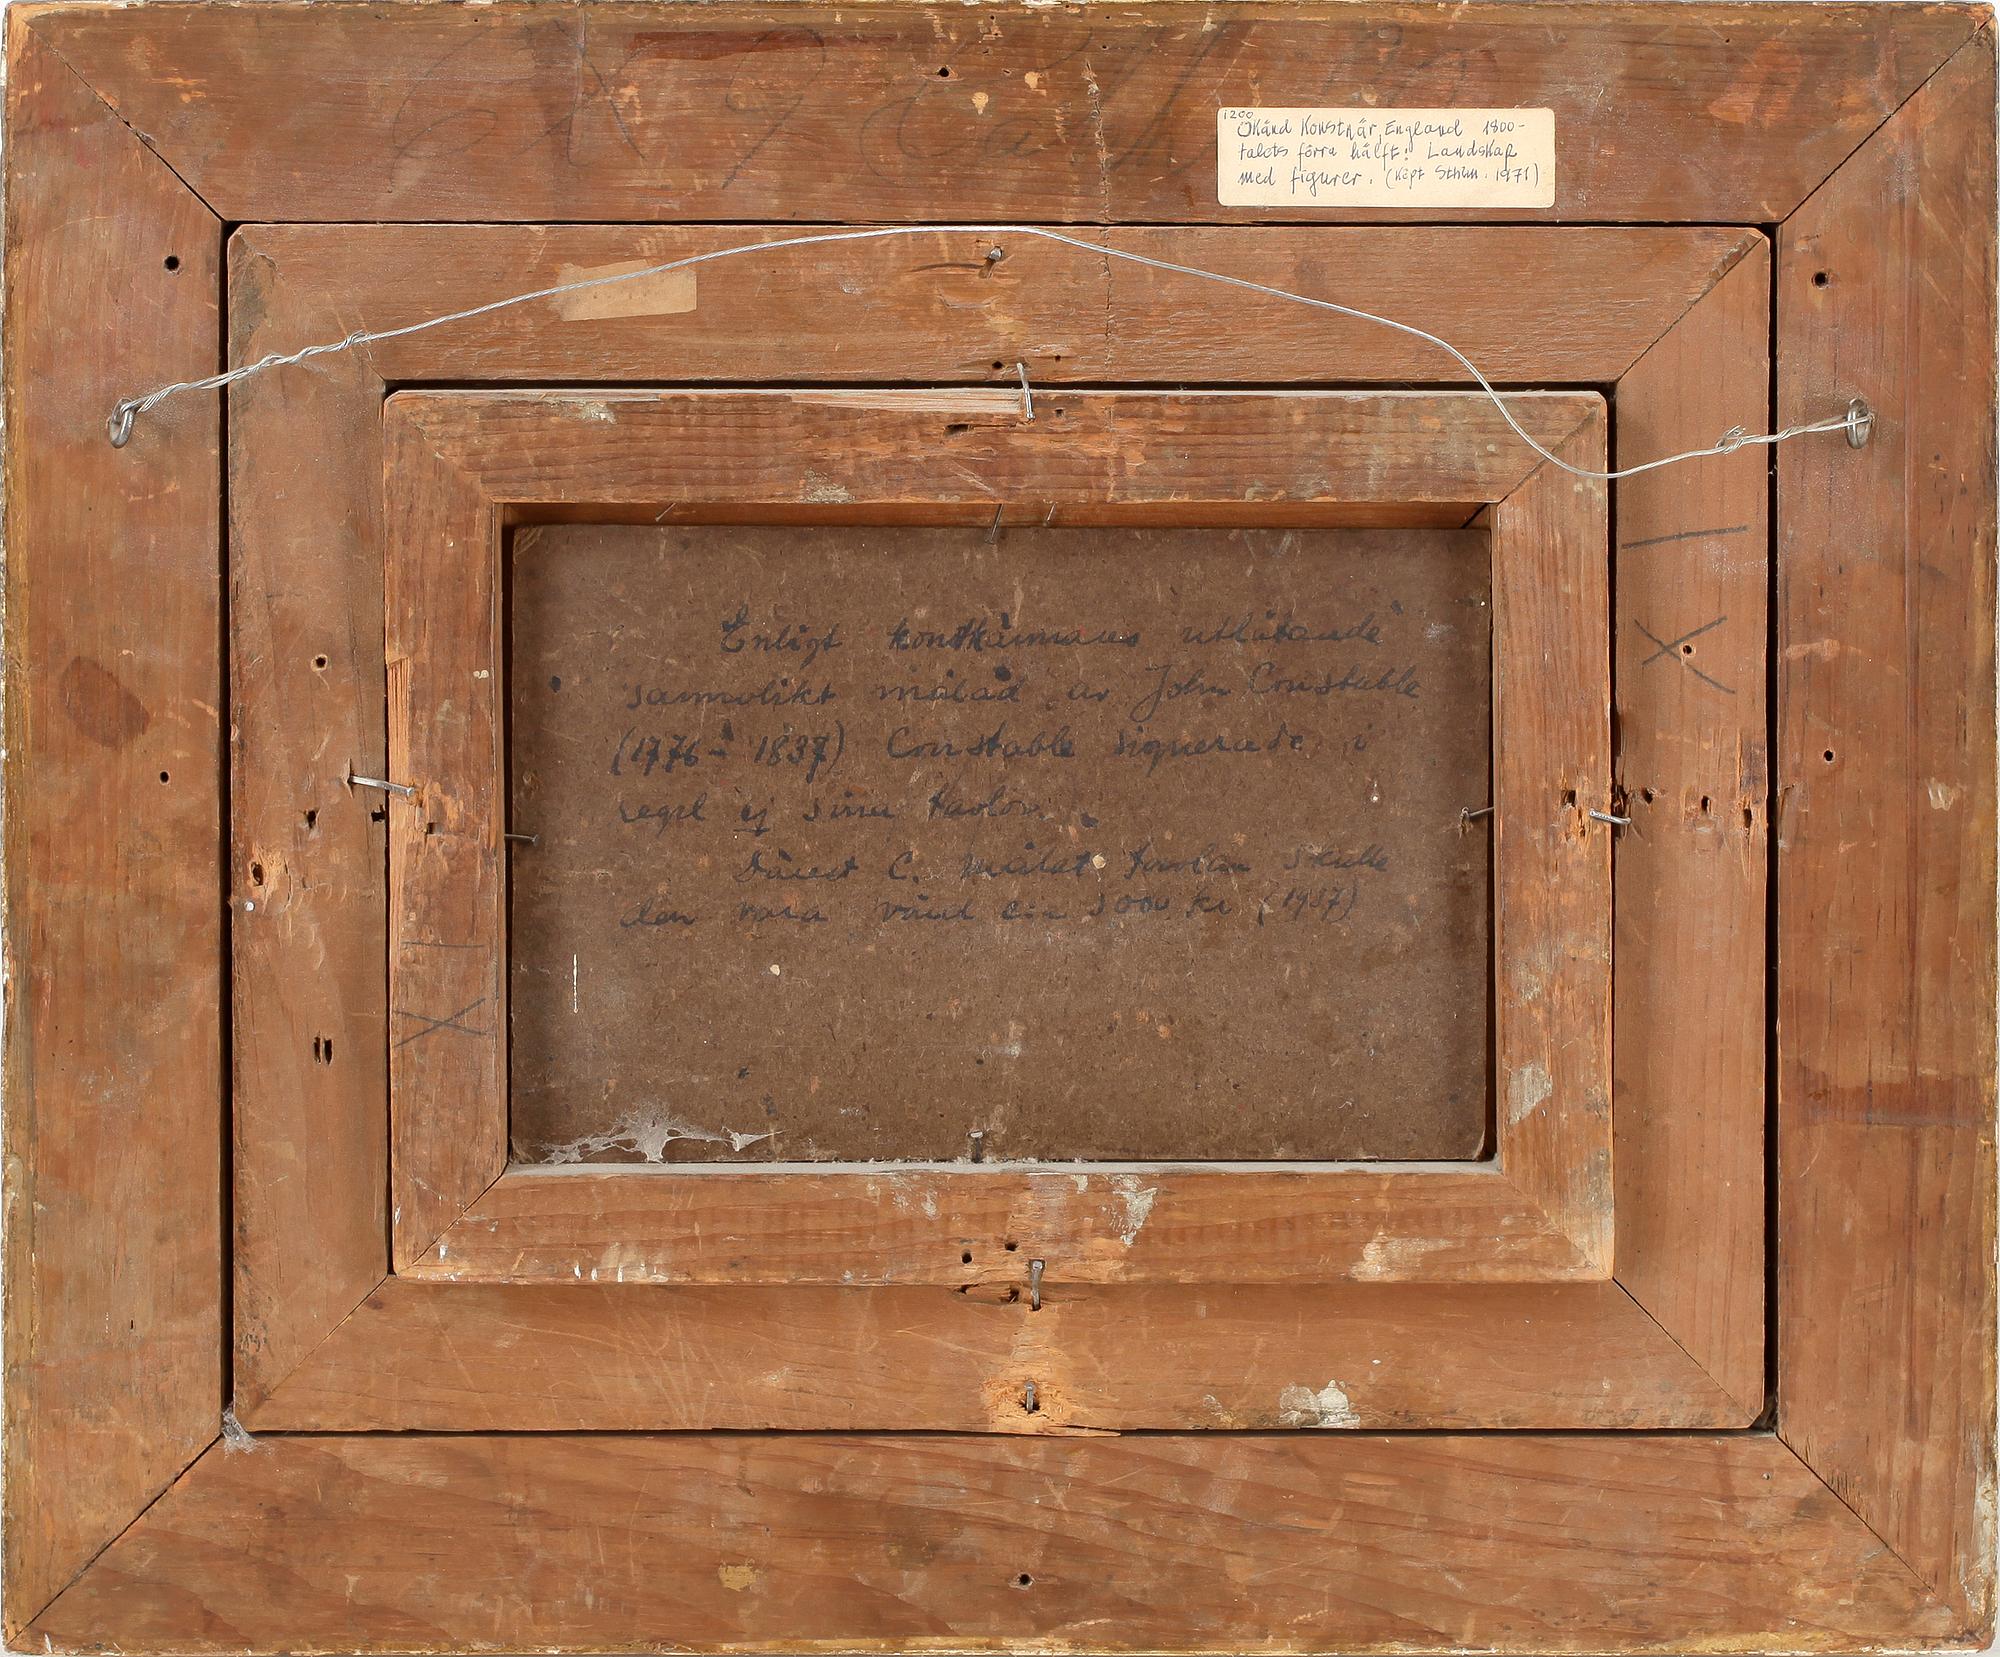 1200
Okänd Konstnär, England 1800-
talets förra hälft: Landskap
med figurer. (Köpt Sthlm. 1971)
Enligt konstkännares utlåtande
sannolikt målad av John Constable
(1776 - 1837) Constable signerade i
regel ej sina tavlor.
Därest C. målat tavlan skulle
den vara värd c:a 5000 kr (1937)
X
X